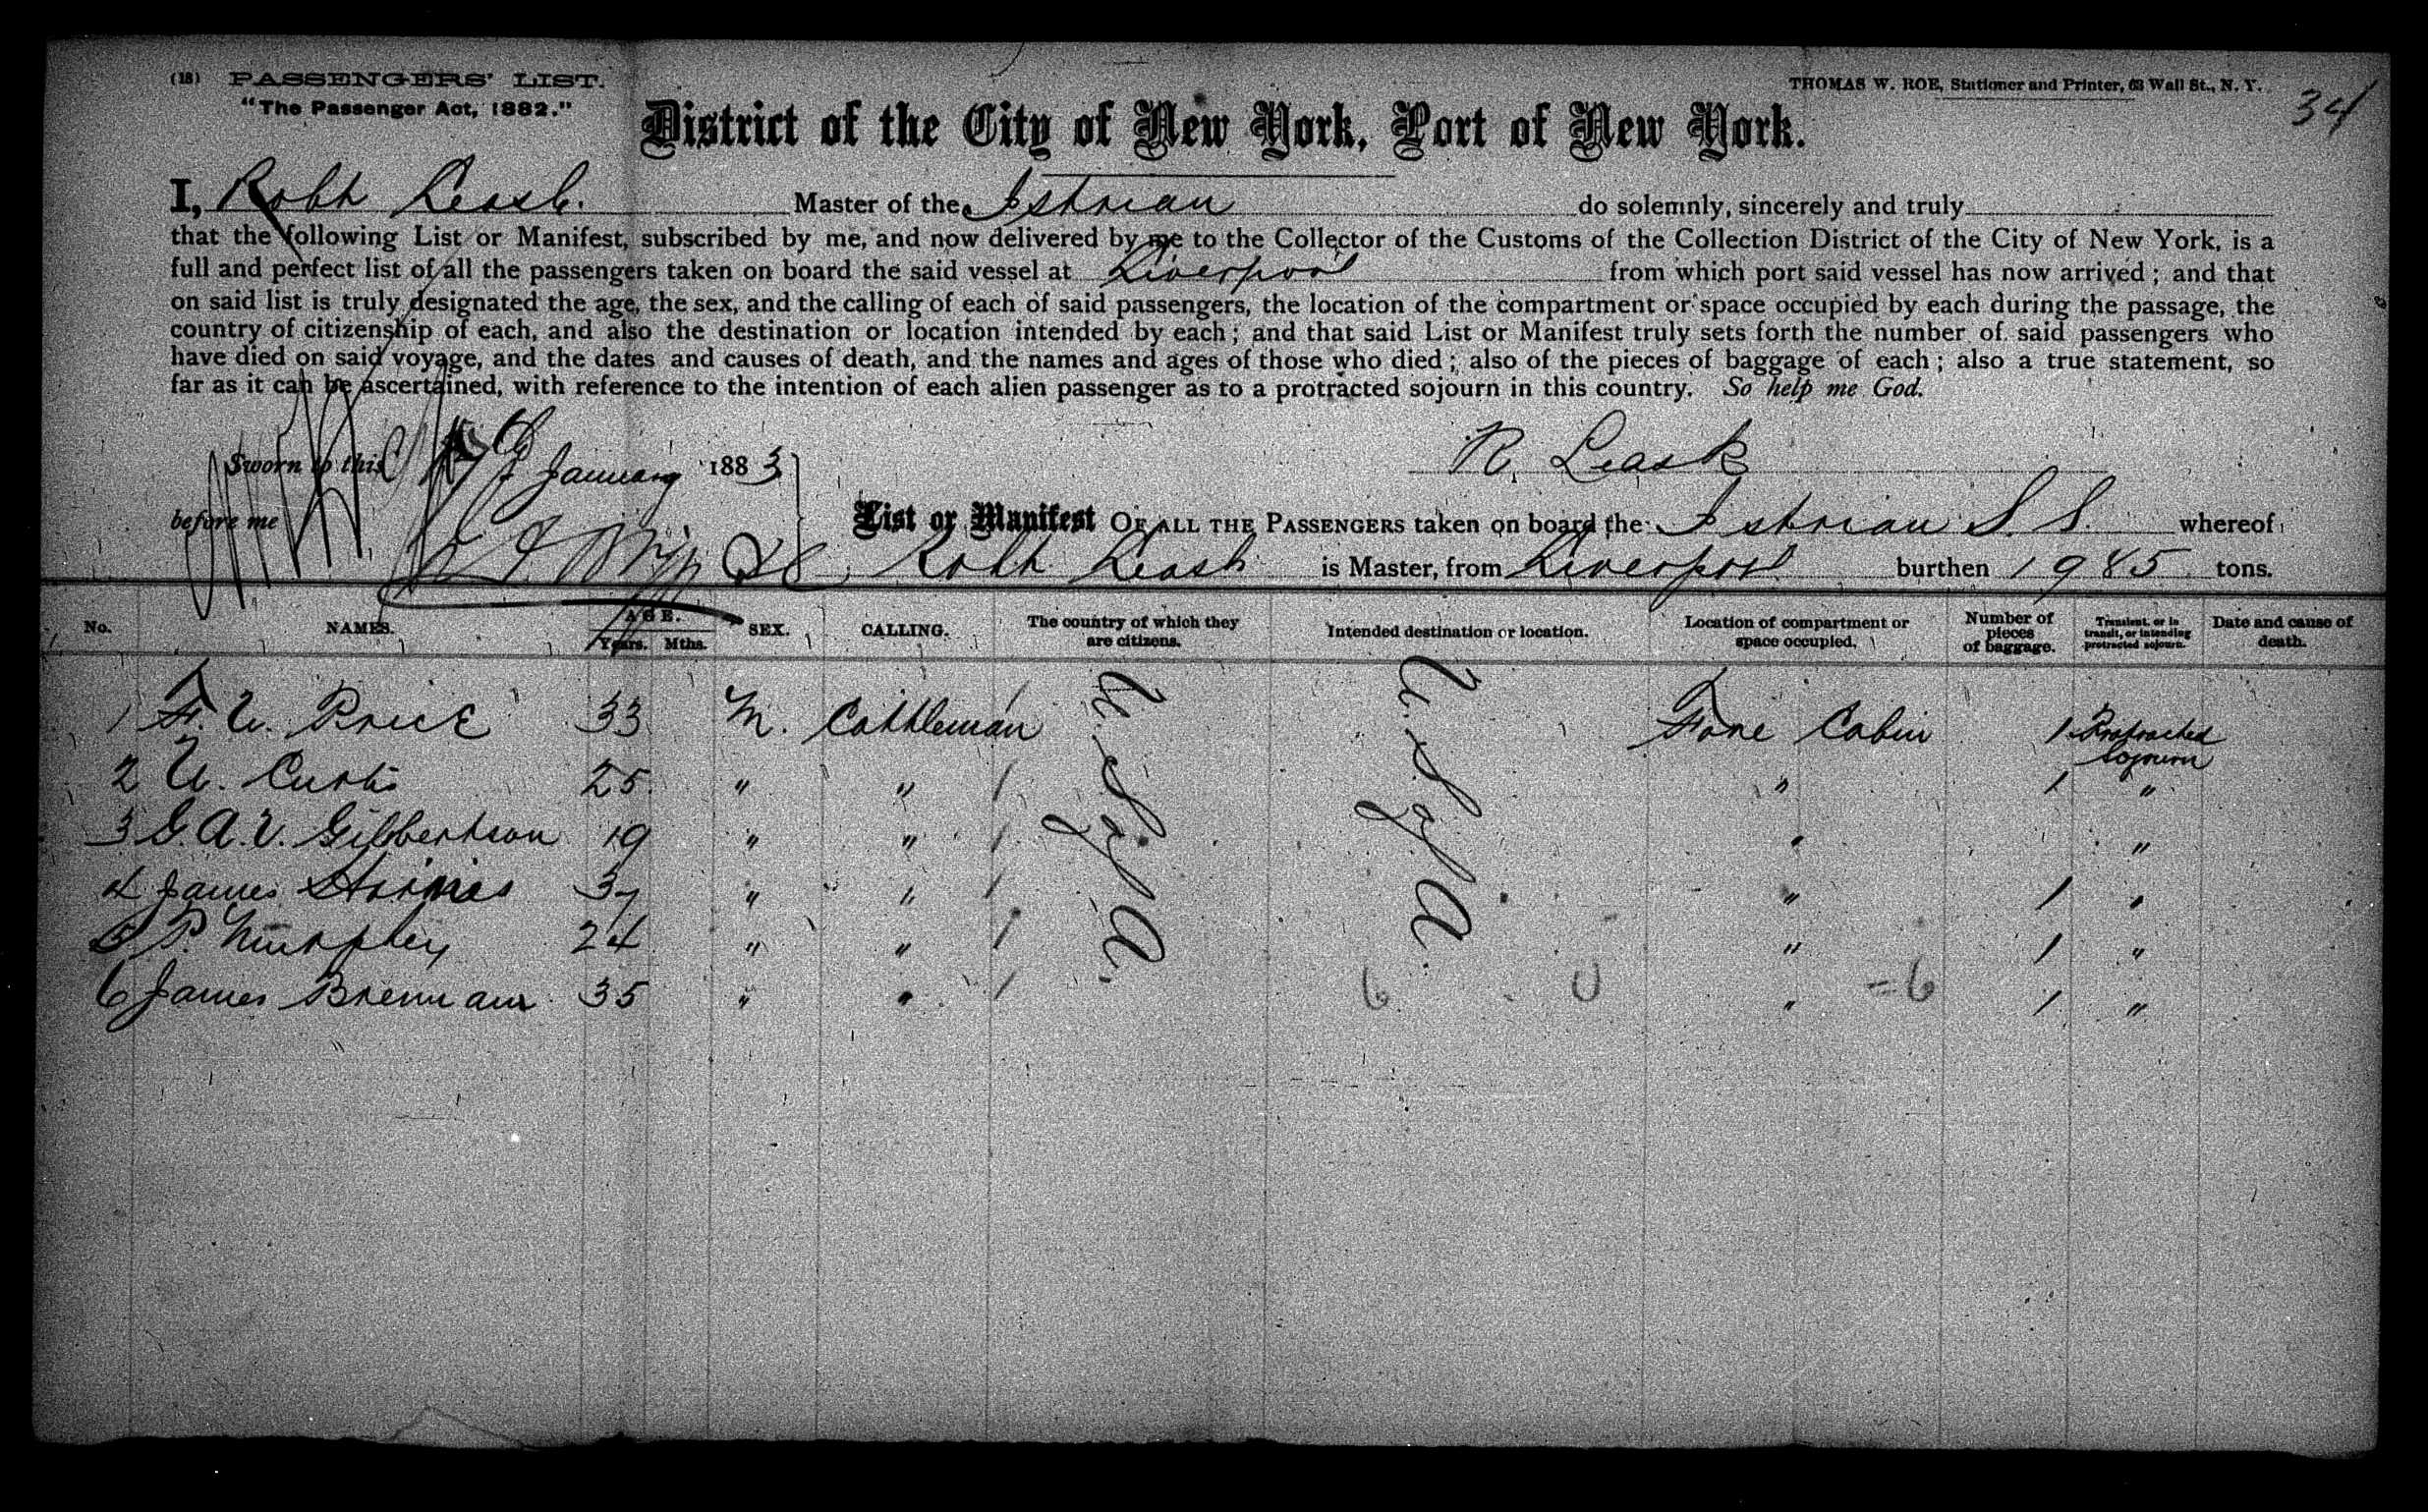 (18) PASSENGERS' LIST.
"The Passenger Act, 1882."
THOMAS W. ROE, Stationer and Printer, 63 Wall St., N. Y.
34
District of the City of New York, Port of New York.
I, Robt Leask. Master of the Istrian do solemnly, sincerely and truly
that the following List or Manifest, subscribed by me, and now delivered by me to the Collector of the Customs of the Collection District of the City of New York, is a
full and perfect list of all the passengers taken on board the said vessel at Liverpool from which port said vessel has now arrived; and that
on said list is truly designated the age, the sex, and the calling of each of said passengers, the location of the compartment or space occupied by each during the passage, the
country of citizenship of each, and also the destination or location intended by each; and that said List or Manifest truly sets forth the number of said passengers who
have died on said voyage, and the dates and causes of death, and the names and ages of those who died; also of the pieces of baggage of each; also a true statement, so
far as it can be ascertained, with reference to the intention of each alien passenger as to a protracted sojourn in this country. So help me God.
Sworn to this January 1883
R. Leask
before me
List or Manifest OF ALL THE PASSENGERS taken on board the Istrian S.S. whereof
Robt Leask is Master, from Liverpool burthen 1985 tons.
No. NAMES. AGE. Years. Mths. SEX. CALLING. The country of which they are citizens. Intended destination or location. Location of compartment or space occupied. Number of pieces of baggage. Transient, or in transit, or intending protracted sojourn. Date and cause of death.
1 F. W. Price 33 M. Cattleman U.S. of A. U.S. of A. Fore Cabin 1 Protracted Sojourn
2 W. Curtis 25 " " / " 1 "
3 G. A. V. Gilbertson 19 " " / " "
4 James 37 " " / " 1 "
5 P. Murphey 24 " " / " 1 "
6 James Brennan 35 " " / " 1 "
6 0 =6